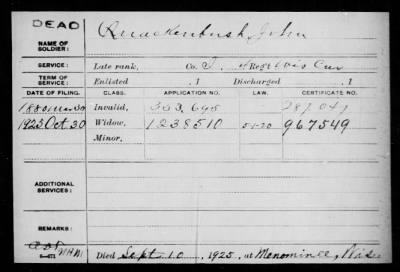 DEAD
Quackenbush, John
NAME OF
SOLDIER:
SERVICE: Late rank, Co. I, 4 Regt Wis Cav
TERM OF
SERVICE: Enlisted , 1 Discharged , 1
DATE OF FILING. CLASS. APPLICATION NO. LAW. CERTIFICATE NO.
1880 Mar 30 Invalid, 353,695 287,047
1925 Oct 30 Widow, 1238510 5-1-20 967549
Minor,
ADDITIONAL
SERVICES:
REMARKS:
Died Sept 10, 1925, at Menominee, Wis